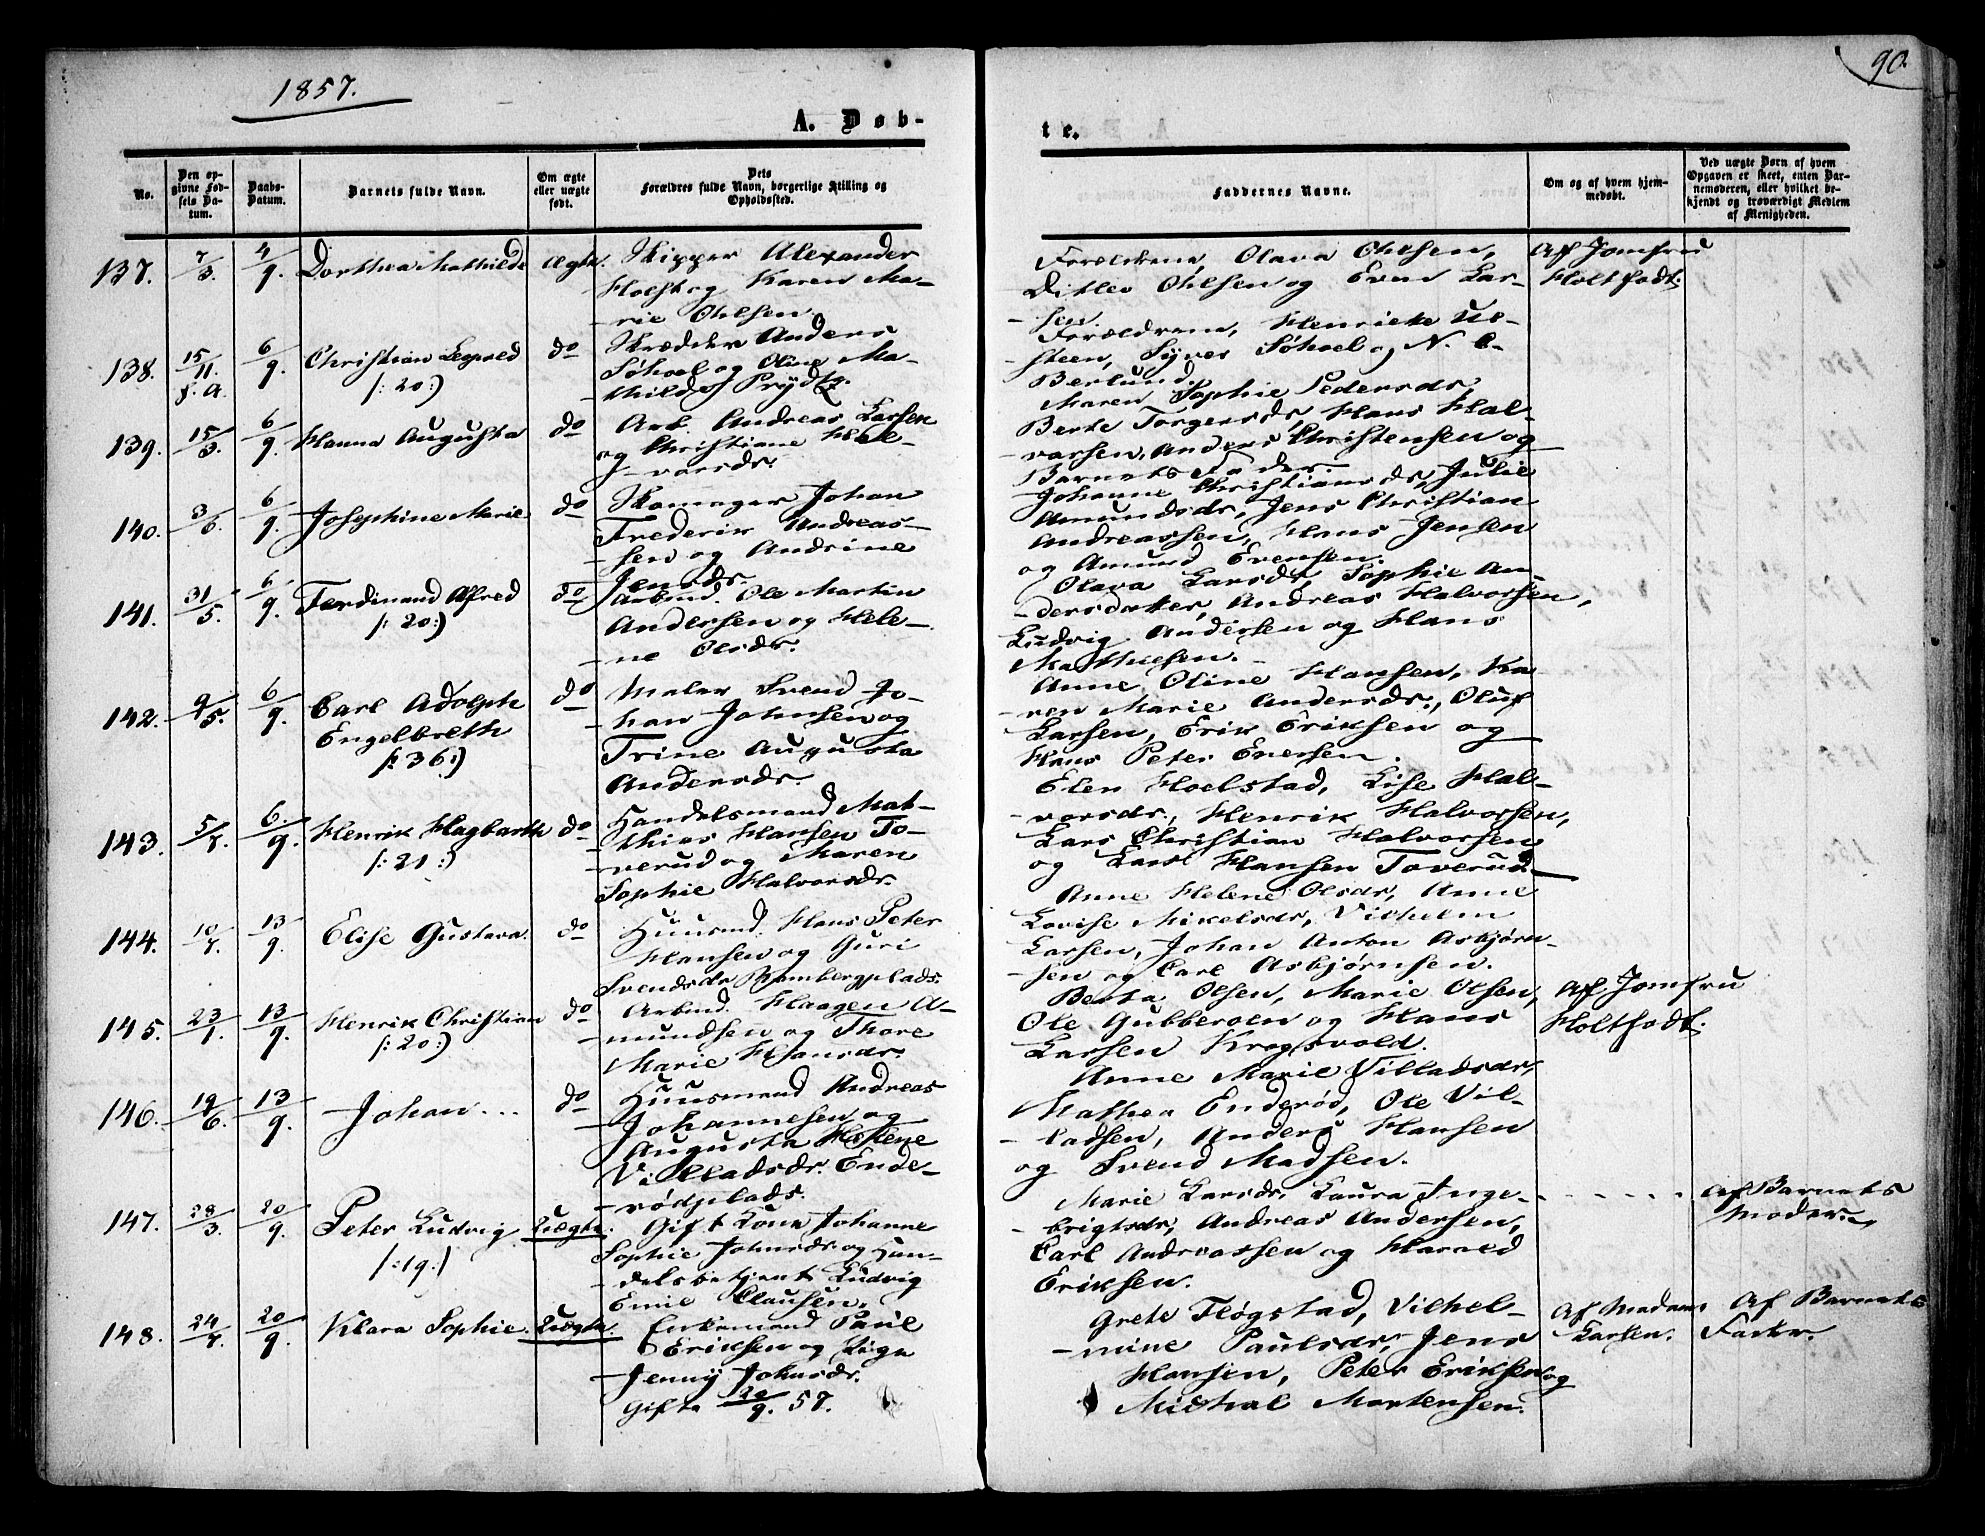 1857.
90.
A. Døb-
te.
No.
Den op-
givne Fød-
sels Da-
tum.
Daabs-
Datum.
Barnets fulde Navn.
Om ægte
eller uægte
født.
Dets
Forældres fulde Navn, borgerlige Stilling og
Opholdssted.
Faddernes Navne.
Om og af hvem hjem-
medøbt.
Ved uægte Børn af hvem
Opgaven er skeet, enten Bar-
nemoderen, eller hvilket be-
kjendt og troværdigt Medlem
af Menigheden.
137. 7/3. 4/9. Dorthea Mathilde Ægte. Skipper Alexander
Holst og Karen Ma-
rie Ohlsen.
Forældrene, Olava Ohlsen,
Ditlev Ohlsen og Even Lar-
sen.
Af Jomfru
Holtfodt.
138. 15/11. f. A. 6/9. Christian Leopold
/: 20:)
do Skrædder Anders
og Oline Ma-
thilde Prydtz.
Forældrene, Henriette
og N. C.
Berlund.
139. 15/3. 6/9. Hanna Augusta do Arb. Andreas Larsen
og Christiane Hal-
vorsdr.
Maren Sophie Pedersdr,
Berte Torgersdr, Hans Hal-
varsen, Anders Christensen og
Barnets Fader.
140. 3/6. 6/9. Josephine Marie do Skomager Johan
Frederik Andreas-
sen og Andrine
Jensdr.
Johanne Christiansdr, Julie
Amundsdr, Jens Christian
Andreassen, Hans Jensen
og Amund Evensen.
141. 31/5. 6/9. Ferdinand Alfred
/: 20:)
do Arbmd. Ole Martin
Andersen og Hele-
ne Olsdr.
Olava Larsdr, Sophie An-
dersdatter, Andreas Halvorsen,
Ludvig Andersen og Hans
Mathisen.
142. 9/5. 6/9. Carl Adolph
Engelbreth
/: 36:)
do Maler Svend Jo-
han Johnsen og
Trine Augusta
Andersdr.
Anne Oline Hansen, Ka-
ren Marie Andersdr., Oluf
Larsen, Erik Eriksen og
Hans Peter Evensen.
143. 5/7. 6/9. Henrik Hagbarth
/: 21:)
do Handelsmand Mat-
thias Hansen To-
verud og Maren
Sophie Halvorsdr.
Elen Hoelstad, Lise Hal-
vorsdr., Henrik Halvorsen,
Lars Christian Halvorsen
og Carl Hansen Toverud
144. 10/7. 13/9. Elise Gustava. do Huusmd. Hans Peter
Hansen og Guri
Svendsdr
Anne Helene Olsdr, Anne
Lovise Mikelsdr, Vilhelm
Larsen, Johan Anton Asbjørn-
sen og Carl Asbjørnsen.
145. 23/1. 13/9. Henrik Christian
/: 20:)
do Arbmd. Haagen A-
mundsen og Thore
Marie Hansdr.
Berta Olsen, Marie Olsen,
Ole Gubberoen og Hans
Larsen Krogsvold.
Af Jomfru
Holtfodt.
146. 19/6. 13/9. Johan... do Huusmand Andreas
Johannesen og
Augusta Helene
Villadsdr. Ende-
rødplads.
Anne Marie Villadsdr,
Mathea Enderød, Ole Vil-
ladsen, Anders Hansen
og Svend Madsen.
147. 28/3. 20/9. Peter Ludvig
/: 19:)
Uægte Gift Kone Johanne
Sophie Johnsdr og Han-
delsbetjent Ludvig
Emil Clausen.
Marie Larsdr, Laura Inge-
brigtsdr, Andreas Andersen,
Carl Andreassen og Harald
Eriksen.
Af Barnets
Moder.
148. 24/7. 20/9. Klara Sophie. Uægte. Enkemand Paul
Eriksen og Pige
Jenny Johnsdr.
Gifte 20/9. 57.
Grete Fløgstad, Vilhel-
mine Paulsdr, Jens
Hansen, Peter Eriksen og
Michal Mortensen.
Af Madam
Larsen.
Af Barnets
Fader.